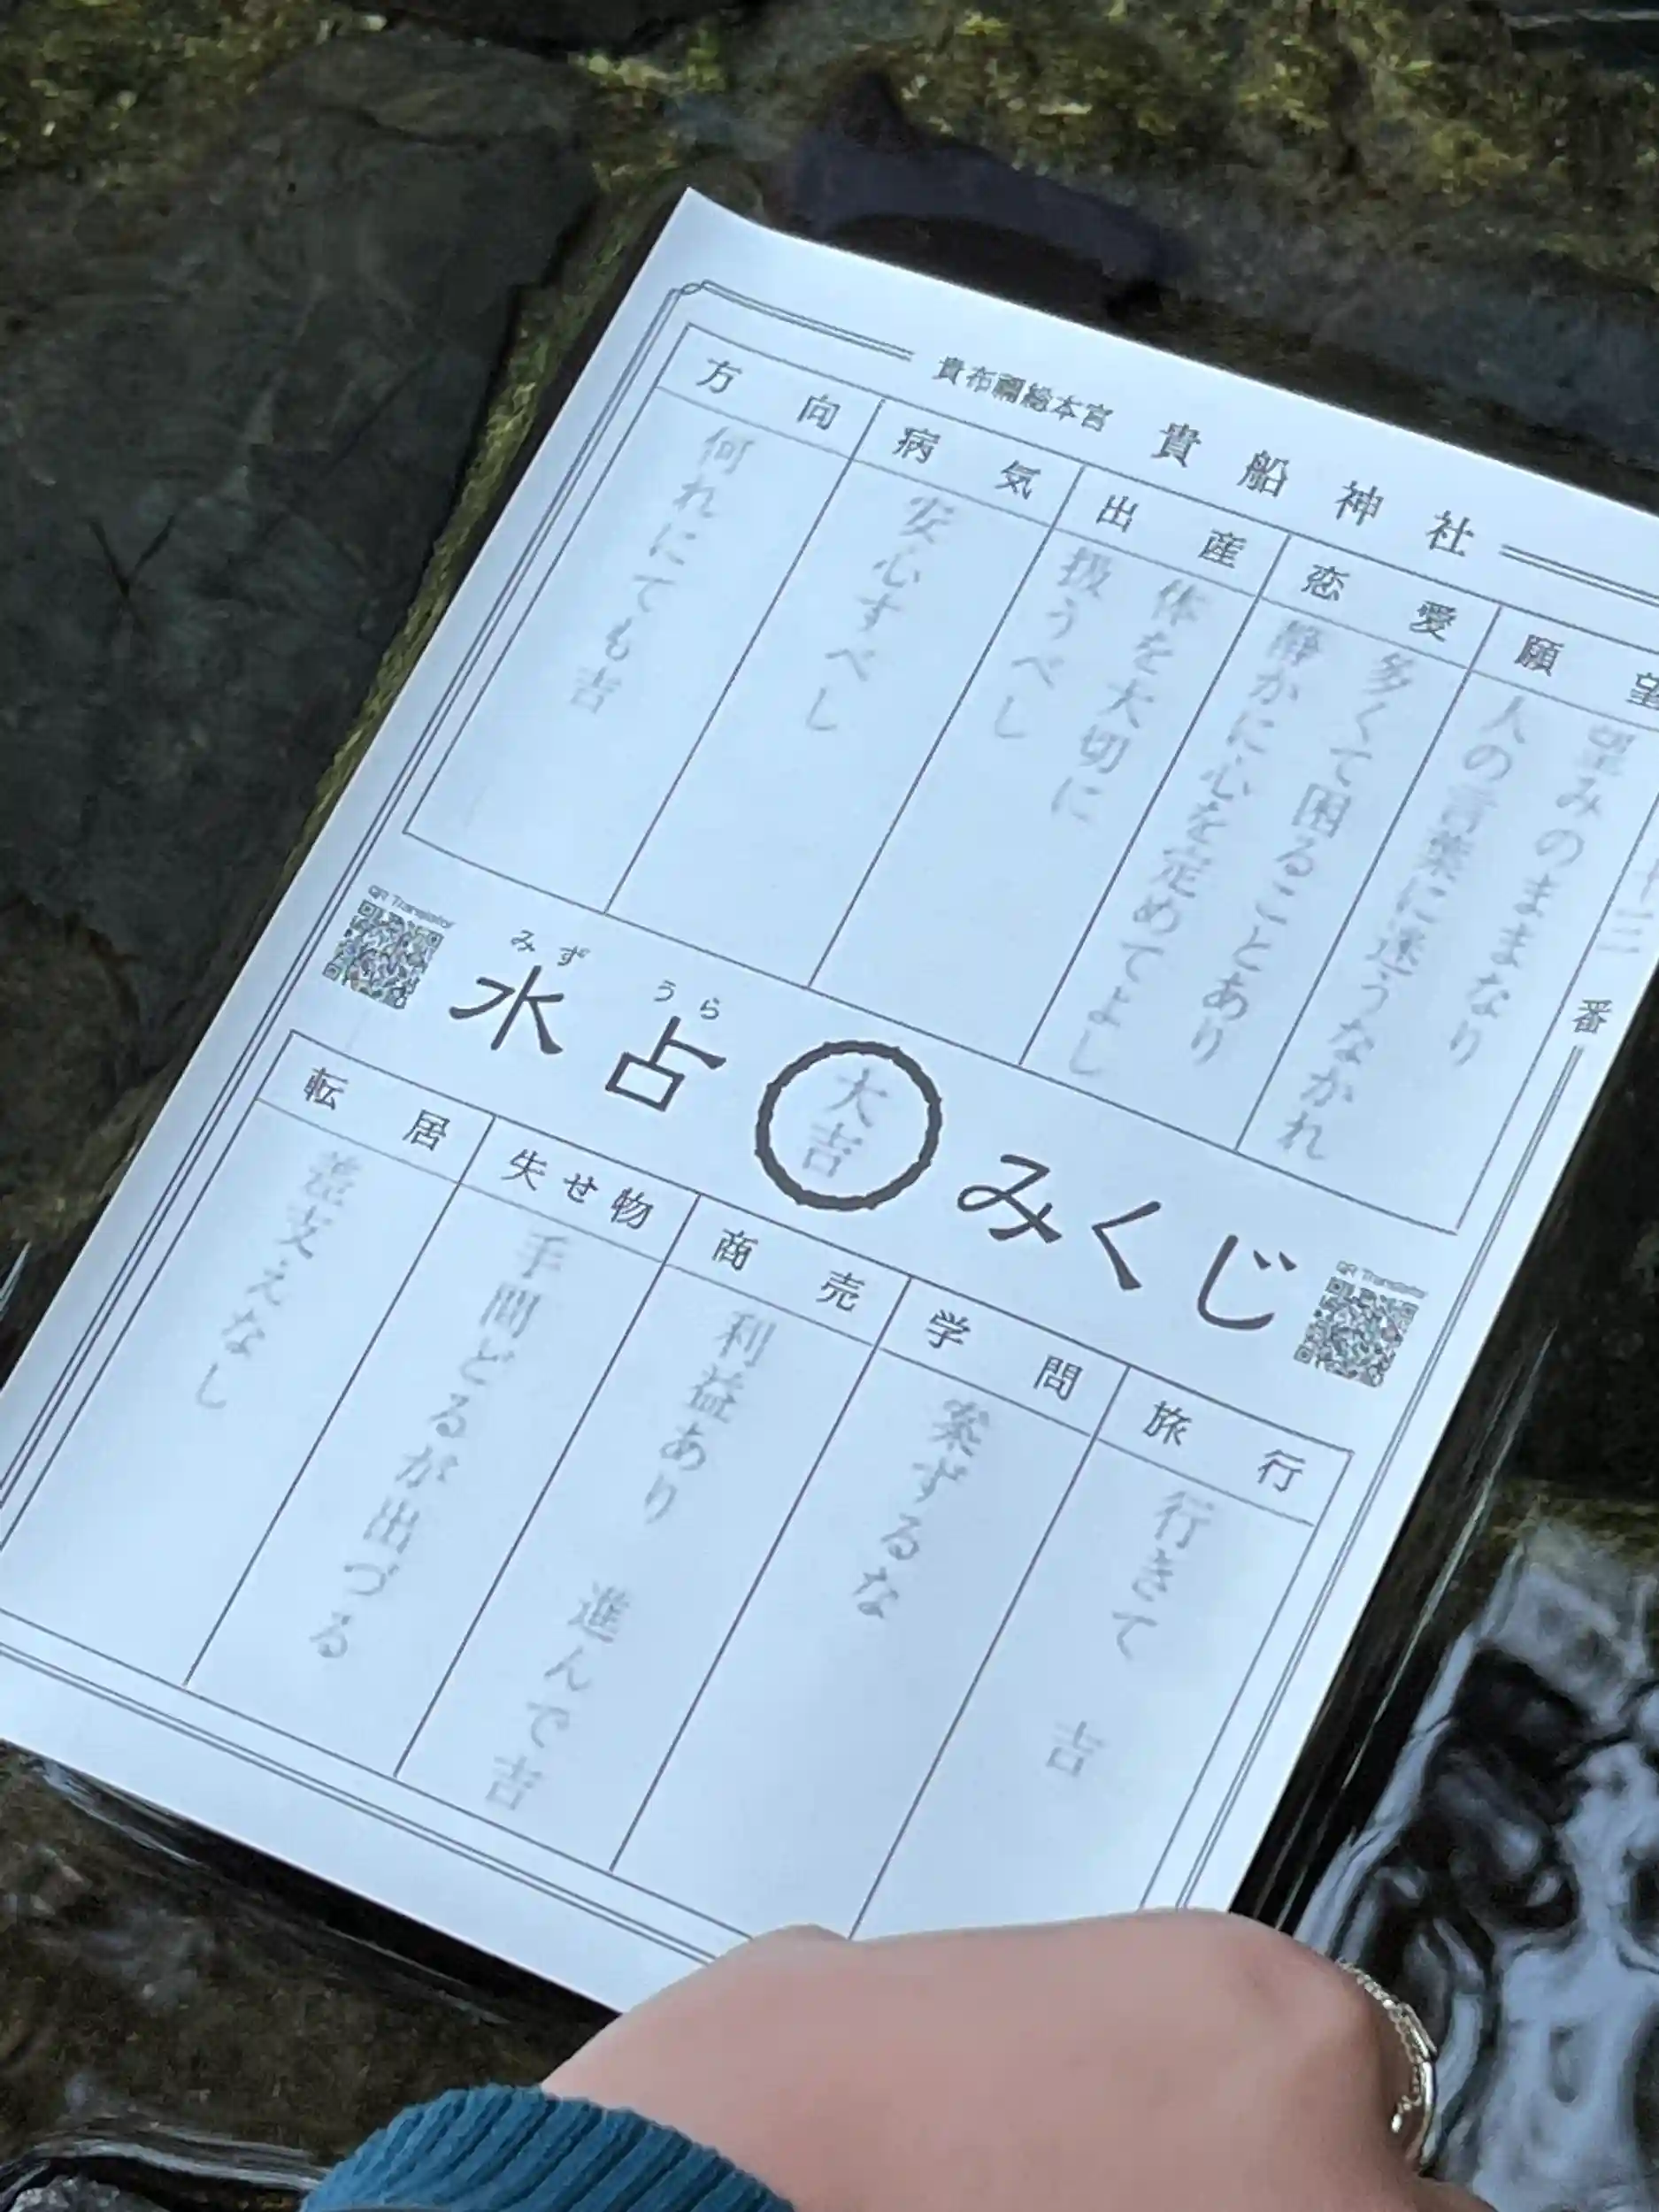 貴布禰総本宮 貴船神社
番
願望
望みのままなり
人の言葉に迷うなかれ
恋愛
多くて困ることあり
静かに心を定めてよし
出産
体を大切に
扱うべし
病気
安心すべし
方向
何れにても吉
QR Translator
みず うら
水占 大吉 みくじ
QR Translator
旅行
行きて 吉
学問
案ずるな
商売
利益あり 進んで吉
失せ物
手間どるが出づる
転居
差支えなし